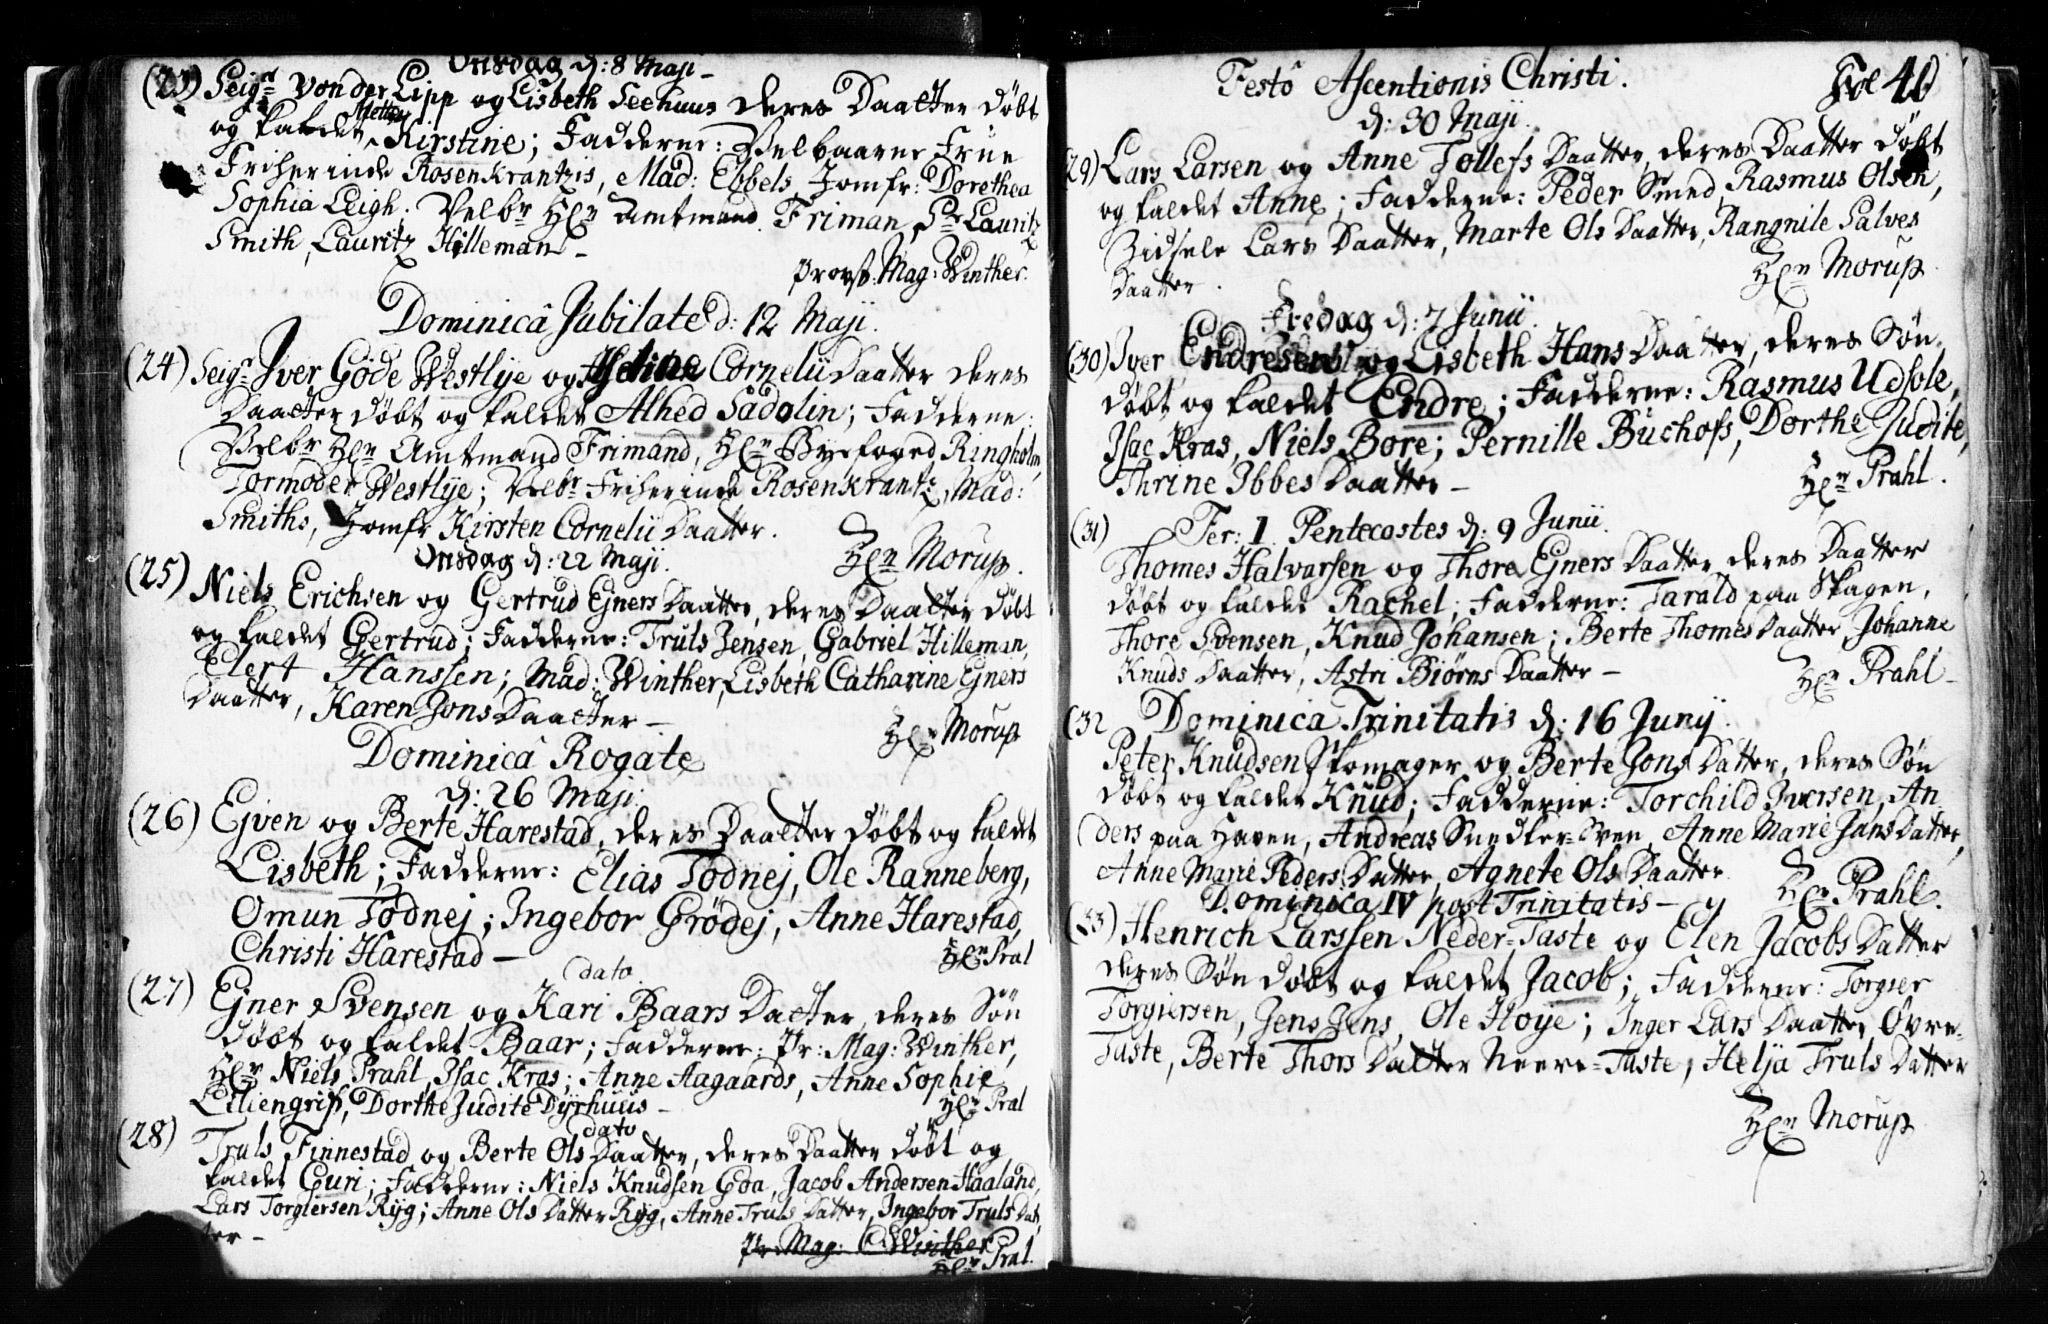 Onsdag d: 8 Maji -
(23) Seigr Von der Lipp og Lisbeth Seehuus deres Daatter døbt
og kaldet Mette Kirstine; Fadderne: Velbaarne Frue
Friherinde Rosenkrantzis, Mad: Ebbels, Jomfr: Dorethea
Sophia Leigh. Velbr Hr Amtmand Friman, Sr Lauritz
Smith, Lauritz Hilleman -
Provst. Mag: Winther.
Dominicâ Jubilate d: 12 Maji.
(24) Seigr Iver Gøde Westlye og Cornelii Daatter deres
Daatter døbt og kaldet Alhed Sadolin; Fadderne:
Velbr Hr Amtmand Frimand, Hr Byefoged Ringholm,
Tormoder Westlye; Velbr Friherinde Rosenkrantz, Mad:
Smiths, Jomfr Kirsten Cornelii Daatter.
Hr Morup.
Onsdag d: 22 Maji.
(25) Niels Erichsen og Gertrud Ejners Daatter, deres Daatter døbt
og kaldet Gertrud; Fadderne: Truls Jensen, Gabriel Hilleman,
Elert Hanssen; Mad: Winther, Lisbeth Catharine Ejners
Daatter, Karen Jons Daatter -
Hr Morup
Dominicâ Rogate
d: 26 Maji.
(26) Ejven og Berte Harestad, deres Daatter døbt og kaldet
Lisbeth; Fadderne: Elias Tødnej, Ole Ranneberg,
Omun Tødnej; Ingebor Grødej, Anne Harestad,
Christi Harestad -
Hr Pral
dato
(27) Ejner Svensen og Kari Baars Datter, deres Søn
døbt og kaldet Baar; Fadderne: Pr: Mag: Winther,
Hr Niels Prahl, Isac Kras; Anne Aagaards, Anne Sophie
Liliengrip, Dorthe Judite Dyrhuus -
Hr Pral
dato
(28) Truls Finnestad og Berte Ols Daatter, deres Daatter døbt og
kaldet Guri; Fadderne: Niels Knudsen Goa, Jacob Andersen Haaland,
Lars Torgiersen Ryg; Anne Ols Datter Ryg, Anne Truls Datter, Ingebor Truls Dat-
ter -
Pr Mag: Winther
Hr Pral.
Festô Ascentionis Christi.
Fol 40
d: 30 Maji.
(29) Lars Larsen og Anne Tollefs Daatter, deres Daatter døbt
og kaldet Anne; Fadderne: Peder Smed, Rasmus Olsen,
Zidsele Lars Daatter, Marte Ols Daatter, Rangnile Salves
Daatter.
Hr Morup
Fredag d: 7 Junii.
(30) Iver Endresen og Lisbeth Hans Daatter, deres Søn
døbt og kaldet Endre; Fadderne: Rasmus Udsole,
Isac Kras, Niels Bore; Pernille Buchofs, Dorthe Judite,
Thrine Ibbes Daatter -
Hr Prahl.
(31) Fer: 1. Pentecostes d: 9 Junii.
Thomes Halvarsen og Thore Ejners Daatter, deres Daatter
døbt og kaldet Rachel; Fadderne: Tarald paa Skagen,
Thore Svensen, Knud Johansen; Berte Thomes Daatter, Johanne
Knuds Daatter, Astri Biørns Daatter -
Hr Prahl -
(32 Dominica Trinitatis d: 16 Junij.
Peter Knudsen Skomager og Berte Jons Datter, deres Søn
døbt og kaldet Knud; Fadderne: Torchild Iversen, An-
ders paa Haven, Andreas Snedker-Sven, Anne Marie Jans Datter,
Anne Marie Peders Datter, Agnete Ols Daatter
Hr Prahl.
Dominica IV post Trinitatis -
(33) Henrich Larssen Neder-Taste og Elen Jacobs Datter
deres Søn døbt og kaldet Jacob; Fadderne: Torgier
Torgiersen, Jens Jens, Ole Hoye; Inger Lars Daatter Øvre-
Taste, Berte Thors Datter Neere-Taste, Helja Truls Datter
Hr Morup